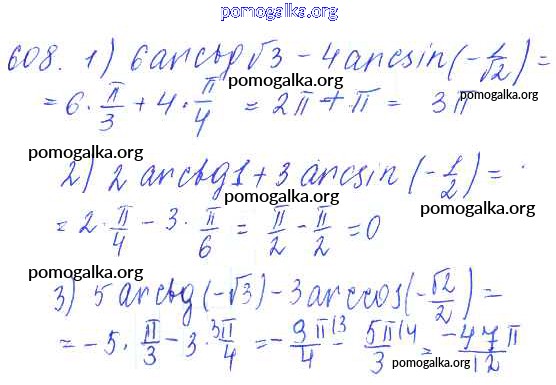 pomogalka.org
608. 1) 6 arctg √3 - 4 arcsin (-1/√2) =
= 6 · π/3 + 4 · π/4 = 2π + π = 3π
pomogalka.org
pomogalka.org
pomogalka.org
2) 2 arctg 1 + 3 arcsin (-1/2) =
pomogalka.org
= 2 · π/4 - 3 · π/6 = π/2 - π/2 = 0
pomogalka.org
pomogalka.org
3) 5 arctg (-√3) - 3 arccos (-√2/2) =
= -5 · π/3 - 3 · 3π/4 = -9π/4 - 5π/3 = -47π/12
pomogalka.org